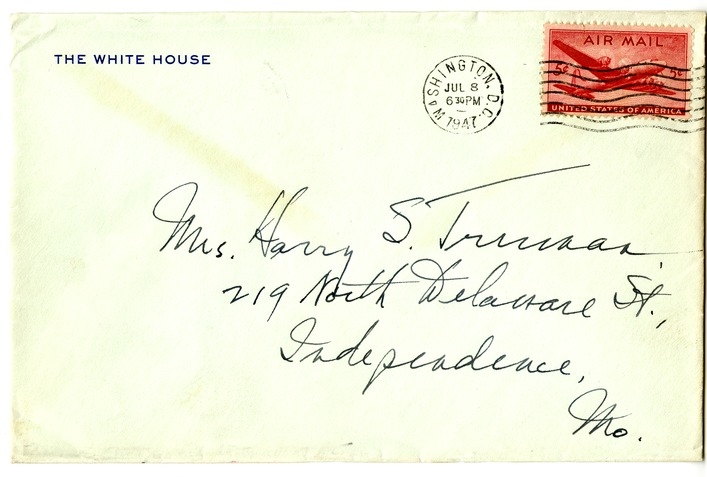 THE WHITE HOUSE
WASHINGTON, D.C.
JUL 8
6 30 PM
1947
AIR MAIL
5¢ 5¢
UNITED STATES OF AMERICA
Mrs. Harry S. Truman
219 North Delaware St.,
Independence,
Mo.